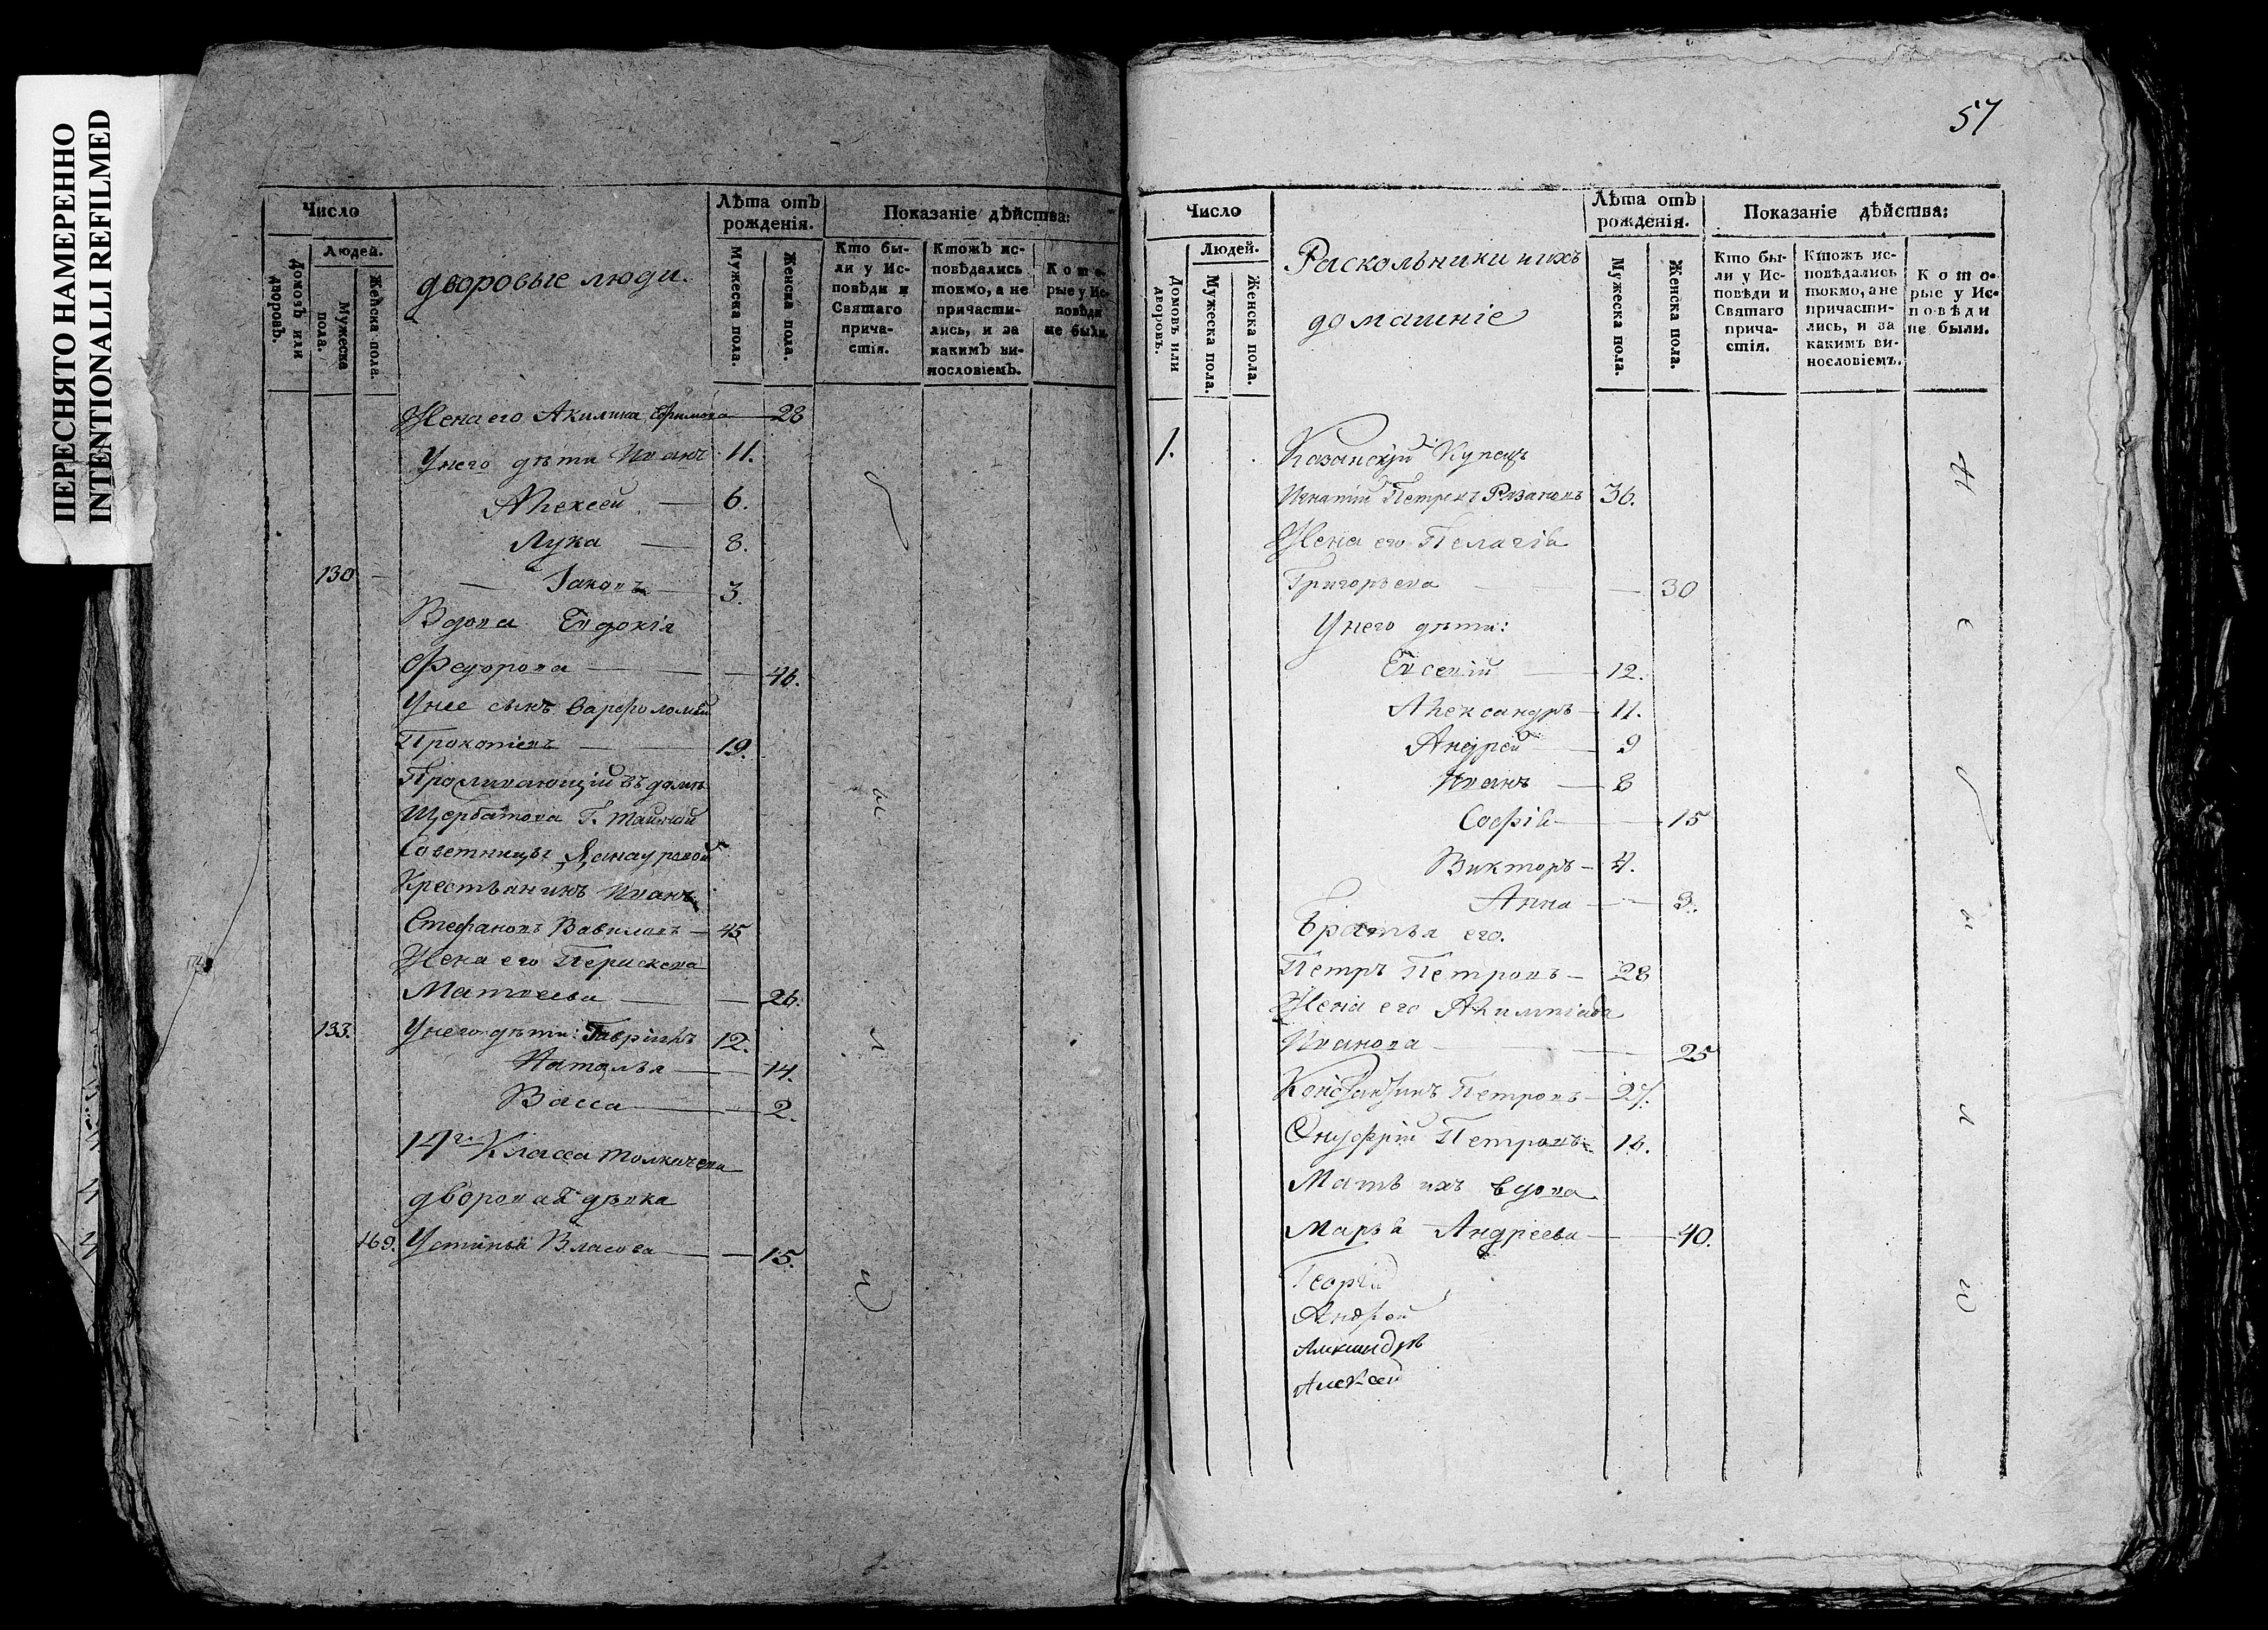 ПЕРЕСНЯТО НАМЕРЕННО
INTENTIONALLI REFILMED
Число
Людей.
Домовъ или дворовъ.
Мужеска пола.
Женска пола.
дворовые люди.
Лѣта отъ рожденія.
Мужеска пола.
Женска пола.
Показаніе дѣйства:
Кто были у Исповѣди и Святаго причастія.
Ктожъ исповѣдались токмо, а не причастились, и за какимъ винословіемъ.
Которые у Исповѣди не были.
Жена его Акилина Ефимова — 28
У него дѣти Иванъ 11.
Алексей — 6.
Лука — 8.
130 — Іаковъ — 3.
Вдова Евдокія
Федорова — 46.
У нее сынъ Варфоломей
Прокопіевъ — 19.
Проживающій въ домѣ
Щербатова Г. Тайной
Советницы
Крестьянинъ Иванъ
Стефановъ Вавиловъ — 45
Жена его Перискева
Матвеева — 26.
133. У него дѣти: Гавріилъ 12.
Наталья — 14.
Васса — 2.
14го Класса Толкачева
дворовая дѣвка
169. Устинья Власова — 15.
были
57
Число
Людей.
Домовъ или дворовъ.
Мужеска пола.
Женска пола.
Раскольники и ихъ
домашніе
Лѣта отъ рожденія.
Мужеска пола.
Женска пола.
Показаніе дѣйства:
Кто были у Исповѣди и Святаго причастія.
Ктожъ исповѣдались токмо, а не причастились, и за какимъ винословіемъ.
Которые у Исповѣди не были.
1. Казанскій Купецъ
Игнатий Петровъ Рязановъ 36.
Жена его Пелагія
Григорьева — 30
У него дѣти:
Евсевій — 12.
Александръ — 11.
Андрей — 9
Иванъ — 8
Софія — 15
Викторъ — 4.
Анна — 3.
Братья его.
Петръ Петровъ — 28
Жена его Алимпіада
Иванова — 25
Константинъ Петровъ — 27.
Онуфрій Петровъ 16.
Мать ихъ вдова
Марья Андреева — 40.
Георгій
Андрей
Александръ
Алексей
не были